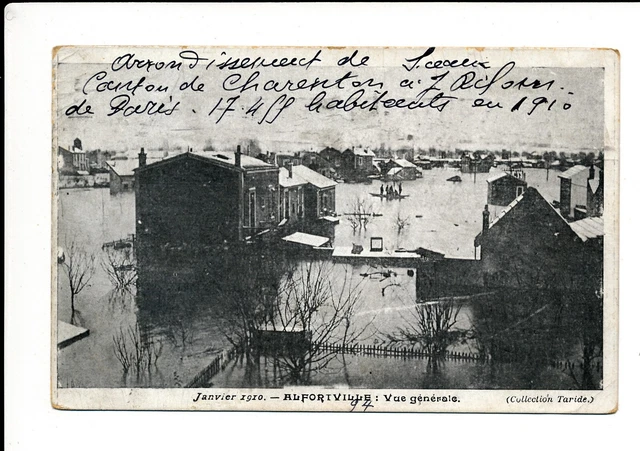 Arrondissement de Sceaux
Canton de Charenton à 7 Kilom.
de Paris. 17.499 habiteents en 1910
Janvier 1910. — ALFORTVILLE : Vue générale.
(Collection Taride.)
94